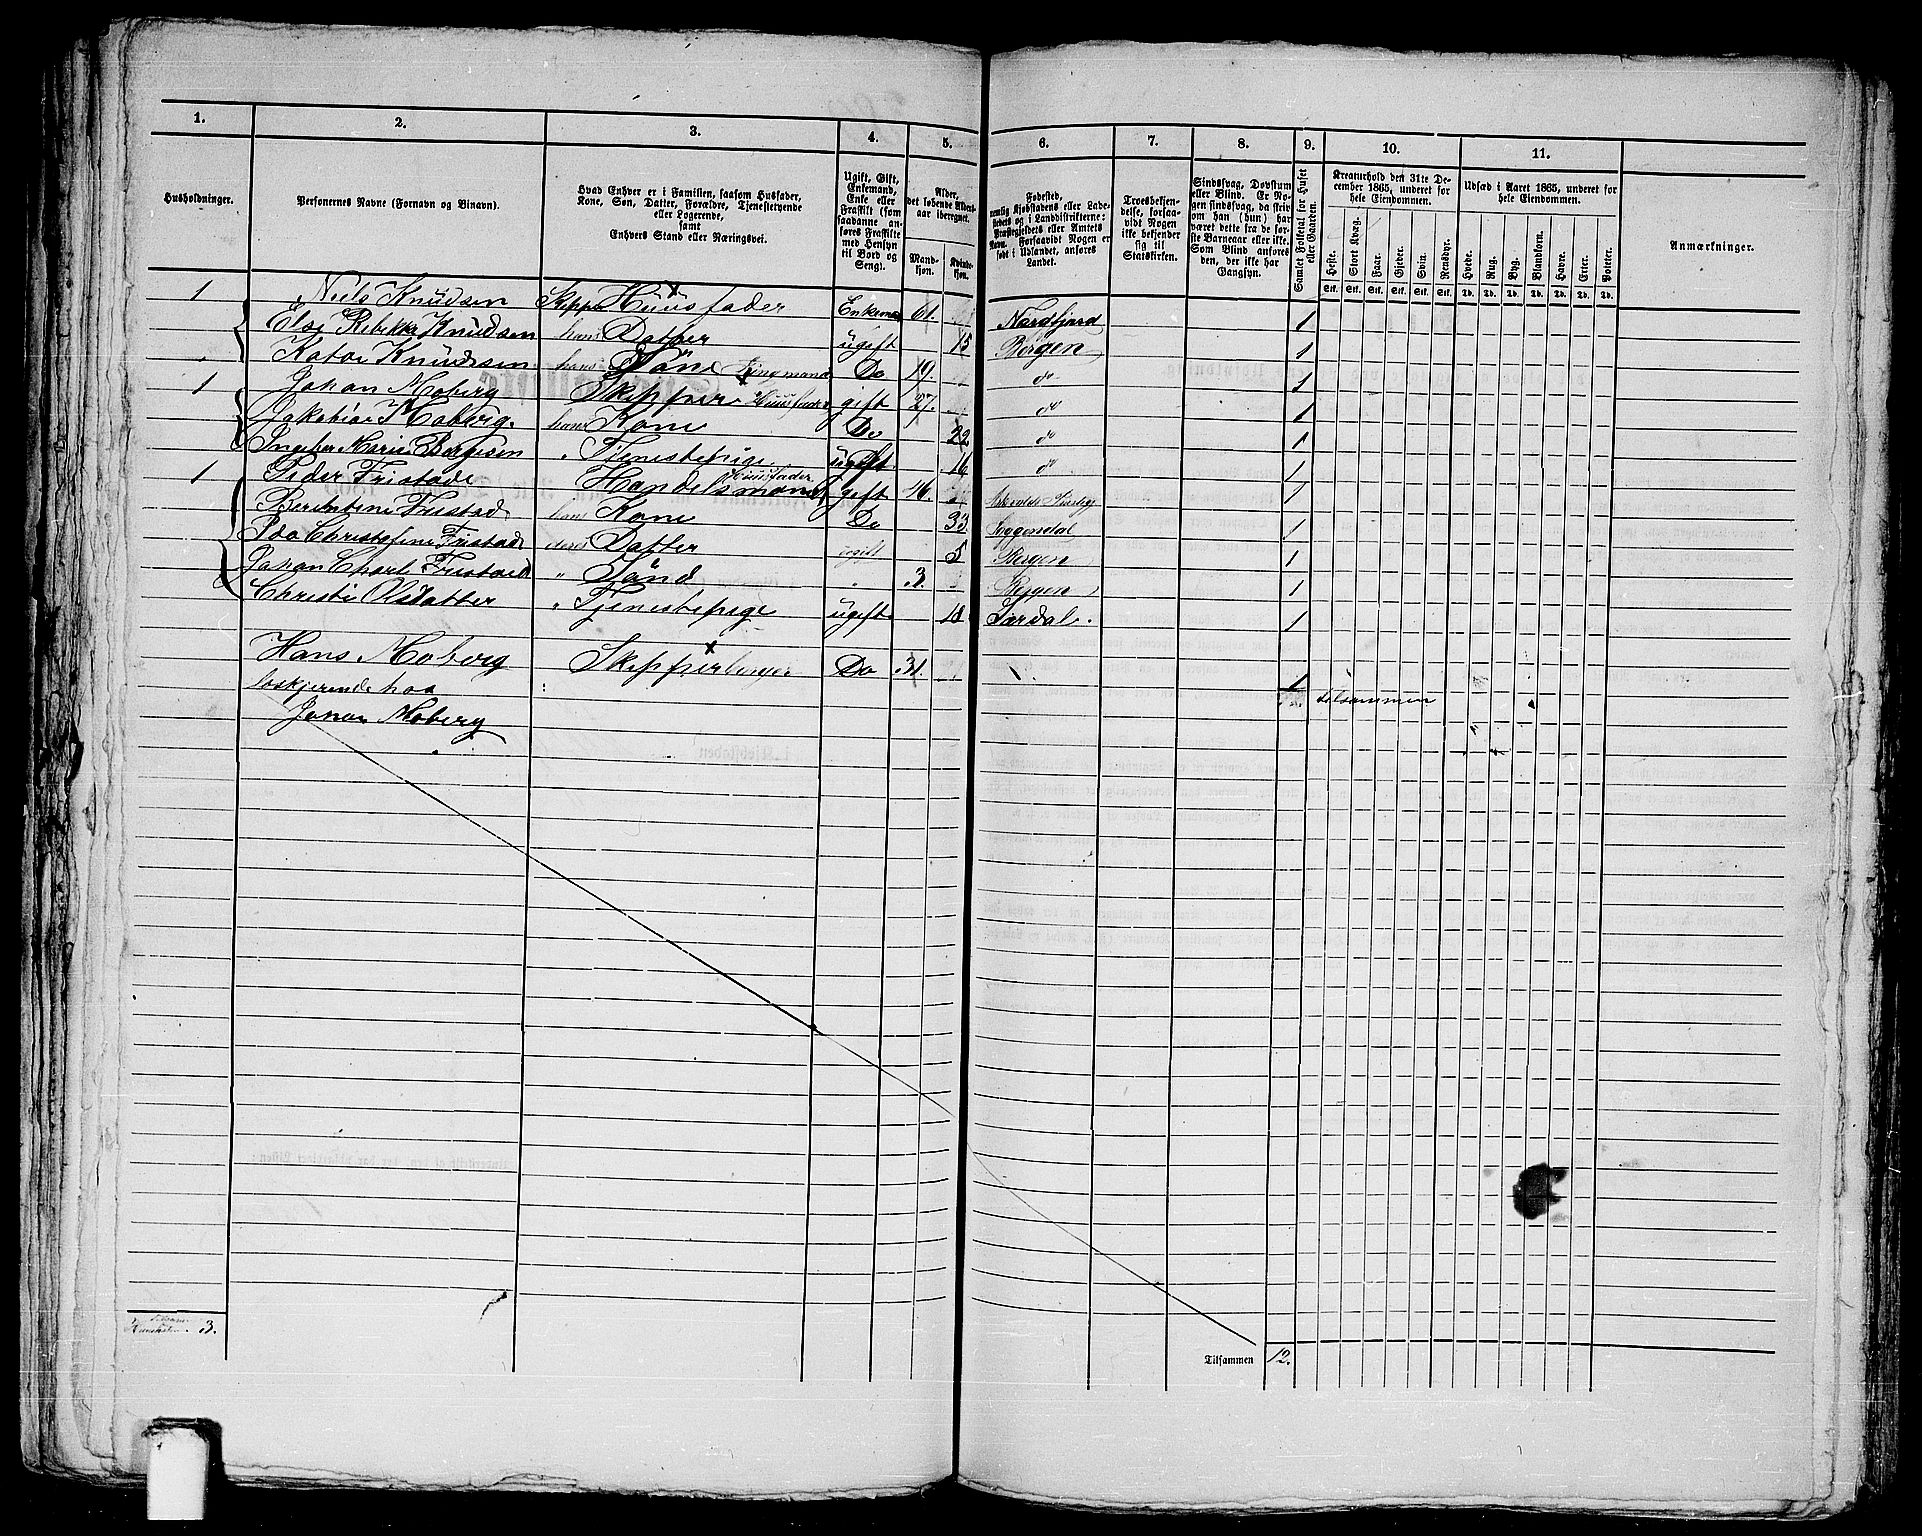 1. 2. 3. 4. 5. 6. 7. 8. 9. 10. 11.
Husholdninger.
Personernes Navne (Fornavn og Binavn).
Hvad Enhver er i Familien, saasom Husfader,
Kone, Søn, Datter, Forældre, Tjenestetyende
eller Logerende,
samt
Enhvers Stand eller Næringsvei.
Ugift, Gift,
Enkemand,
Enke eller
Fraskilt (som
saadanne an-
føres Fraskilte
med Hensyn
til Bord og
Seng).
Alder,
det løbende Alders-
aar iberegnet.
Mand-
kjøn.
Kvinde-
kjøn.
Fødested,
nemlig Kjøbstadens eller Lade-
stedets og i Landdistrikterne:
Præstegjeldets eller Amtets
Navn. Forsaavidt Nogen er
født i Udlandet, anføres
Landet.
Troesbekjen-
delse, forsaa-
vidt Nogen
ikke bekjender
sig til
Statskirken.
Sindssvag, Døvstum
eller Blind. Er No-
gen sindssvag, da skriv
om han (hun) har
været dette fra de før-
ste Barneaar eller ikke.
Som Blind anføres
den, der ikke har
Gangsyn.
Samlet Folketal for Huset
eller Gaarden.
Kreaturhold den 31te De-
cember 1865, underet for
hele Eiendommen.
Heste. Stort Kvæg. Faar. Gjeder. Svin. Rensdyr.
Stk. Stk. Stk. Stk. Stk. Stk.
Udsæd i Aaret 1865, underet for
hele Eiendommen.
Hvede. Rug. Byg. Blandkorn. Havre. Erter. Poteter.
Td. Td. Td. Td. Td. Td. Td.
Anmærkninger.
1 Niels Knudsen Skipper Huusfader Enkemand 61. Nordfjord 1
Else Rebekka Knudsen hans Datter ugift 15 Bergen 1
Knudsen hans Söne Do 19. do 1
1 Johan Moberg Skipper Huusfader gift 27. do 1
Moberg. hans Kone Do 22 do 1
Ingebor Marie Børgesen " Tjenestepige ugift 16 do 1
1 Peder Fristade Handelsmand Huusfader gift 46. 1
Berentine Fristad hans Kone Do 33 Soggendal 1
Ida Christofine Fristade deres Datter ugift 5 Bergen 1
Johan Charl Fristad " Sönd " 3. Bergen 1
Christi Olsdatter " Tjenestepige ugift 18 Lærdal. 1
Hans Moberg Skipperborger Do 31. 1
loskjerende hoa : tilsammen
Johan Moberg
3.
Tilsammen 12.